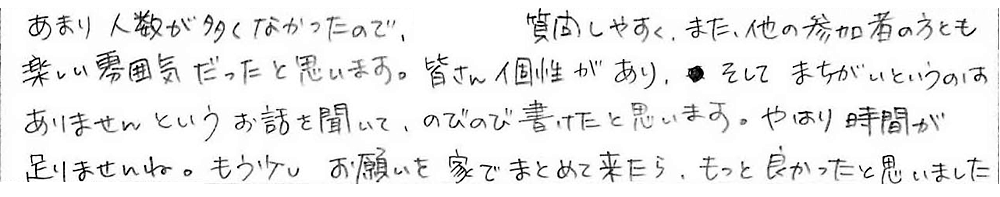 あまり人数が多くなかったので、 質問しやすく、また、他の参加者の方とも
楽しい雰囲気だったと思います。皆さん個性があり、そしてまちがいというのは
ありませんというお話を聞いて、のびのび書けたと思います。やはり時間が
足りませんね。もう少し お願いを家でまとめて来たら、もっと良かったと思いました